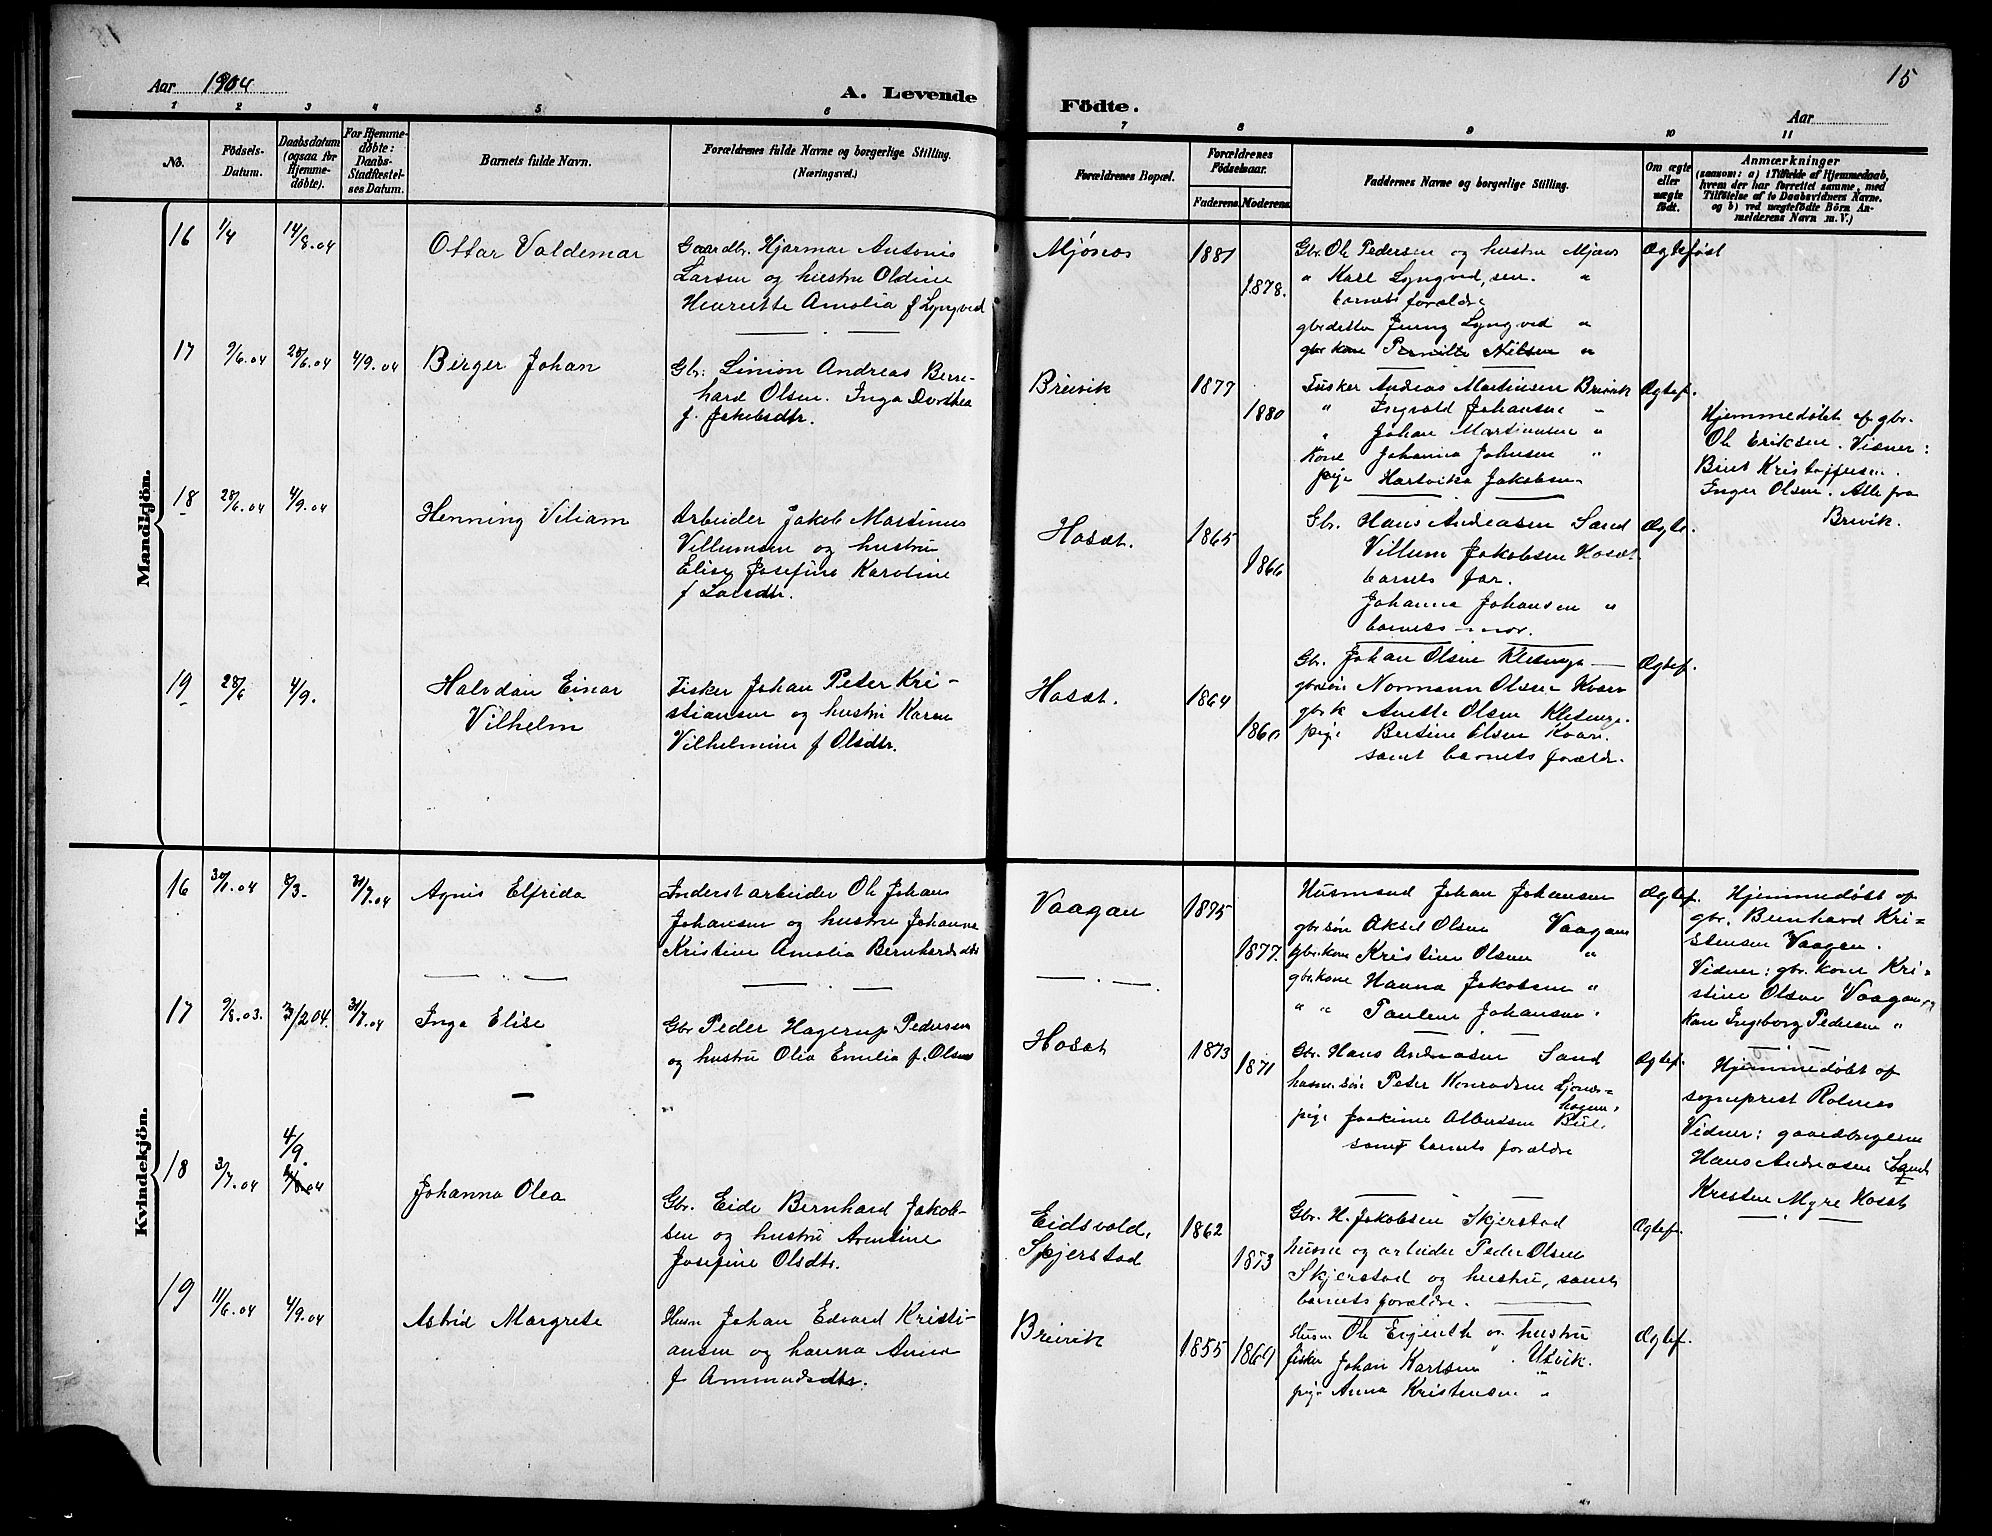 15
Aar 1904
A. Levende Födte.
Aar
1 2 3 4 5 6 7 8 9 10 11
No.
Födsels-Datum.
Daabsdatum (ogsaa for Hjemmedöbte).
For Hjemmedöbte: Daabs-Stadfæstelses Datum.
Barnets fulde Navn.
Forældrenes fulde Navne og borgerlige Stilling. (Næringsvei.)
Forældrenes Bopæl.
Forældrenes Födselsaar.
Faderens. Moderens.
Faddernes Navne og borgerlige Stilling.
Om ægte eller uægte födt.
Anmærkninger
(saasom: a) i Tilfælde af Hjemmedaab,
hvem der har forrettet samme, med
Tilföielse af to Daabsvidners Navne,
og b) ved uægtefödte Börn An-
melderens Navn m. V.)
Mandkjön.
16 1/4 14/8.04
Ottar Valdemar
Gaardbr. Hjarmar Antonis
Larsen og hustru Oldine
Henriette Amalia f Lyngved
Mjönes
1881
1878.
Gbr. Ole Pedersen og hustru Mjönes
" Karl Lyngved, sen. "
barnets forældre
gbrdatter Jenny Lyngved "
gbr kone Pernille Nielsen "
Ægtefödt
17 9/6.04 28/6.04 4/9.04
Birger Johan
Gbr. Simon Andreas Bern-
hard Olsen. Inga Dorthea
f. Jakobsdtr.
Breivik
1877
1880
Fisker Andreas Martinsen Breivik
" Ingvald Johansen "
" Johan Martinusen "
Kone Johanna Johnsen "
pige Hartvika Jakobsen
Ægtef.
Hjemmedøbt af gbr.
Ole Eriksen. Vidner:
Kristoffersen.
Inger Olsen. Alle fra
Breivik.
18 28/6.04 4/9.04
Henning Viliam
Arbeider Jakob Martinus
Villumsen og hustru
Elise Josefine Karoline
f Larsdtr.
Hosæt.
1865
1866
Gbr. Hans Andreasen Sand
Villum Jakobsen Hosæt.
barnets far.
Johanna Johansen "
barnets mor.
Ægte.
19 28/6 4/9.
Halvdan Einar
Vilhelm
Fisker Johan Peter Kri-
stiansen og hustru Karen
Vilhelmine f Olsdtr.
Hosæt.
1864
1860
Gbr. Johan Olsen Kletunga
gbrsön Normann Olsen
gbr k Anette Olsen Kletunga.
pige Bertine Olsen
samt barnets forældr.
Ægtef.
Kvindekjön.
16 30/1.04 6/3. 31/7.04
Agnis Elfrida
Inderst arbeider Ole Johans
Johansen og hustru Johanna
Kristine Amalia Bernhardsdtr
Vaagan
1875
1877.
Husmand Johan Johansen
gbr sön Aksel Olsen Vaagan
gbr.kone Kristine Olsen "
gbr.kone Hanna Jakobsen "
" " Pauline Johansen.
Ægtef.
Hjemmedøbt af
gbr. Bernhard Kri-
stensen Vaagan.
Vidner: gbr. kone Kri-
stine Olsen Vaagan, og
kone Ingeborg Pedersen "
17 9/8.03. 3/2 04. 31/7.04
Inga Elise
Gbr Peder Hagerup Pedersen
og hustru Olia Emilia f. Olsen
Hosæt
1873
1871
Gbr. Hans Andreasen Sand
husm. sön Peter Konradsen Ljönes-
hagen,
pige Joakime Albertsen
samt barnets forældre
Ægtef.
Hjemmedøbt af
sogneprest Rolnes
Vidner: gaardbrugerne
Hans Andreasen Sand
Kristen Myre Hosæt
18 3/7.04 4/9.
Johanna Olea
Gbr. Eide Bernhard Jakob-
sen og hustru Arentine
Josefine Olsdtr.
Eidsvold,
Skjerstad
1862
1873
Gbr. H. Jakobsen Skjerstad
husm og arbeider Peder Olsen
Skjerstad og hustru, samt
barnets forældre.
Ægtef.
19 11/6.04 4/9.04
Astrid Margrete
Husm Johan Edvard Kristi-
ansen og hanna Anna
f Ammundsdtr.
Breivik
1855 1869
Husm Ole og hustru
fisker Johan Karlsen " Utvik.
pige Anna Kristensen "
Ægtef.